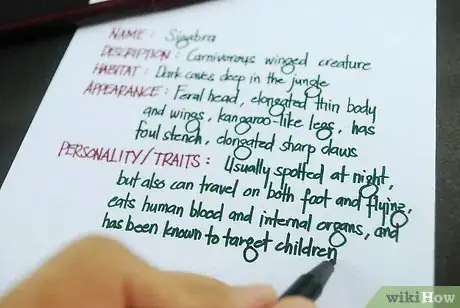 NAME : Sigabra
DESCRIPTION : Carnivorous winged creature
HABITAT : Dark caves deep in the jungle
APPEARANCE : Feral head, elongated thin body
and wings, kangaroo-like legs, has
foul stench, elongated sharp claws
PERSONALITY/TRAITS : Usually spotted at night,
but also can travel on both foot and flying,
eats human blood and internal organs, and
has been known to target children
wikiHow